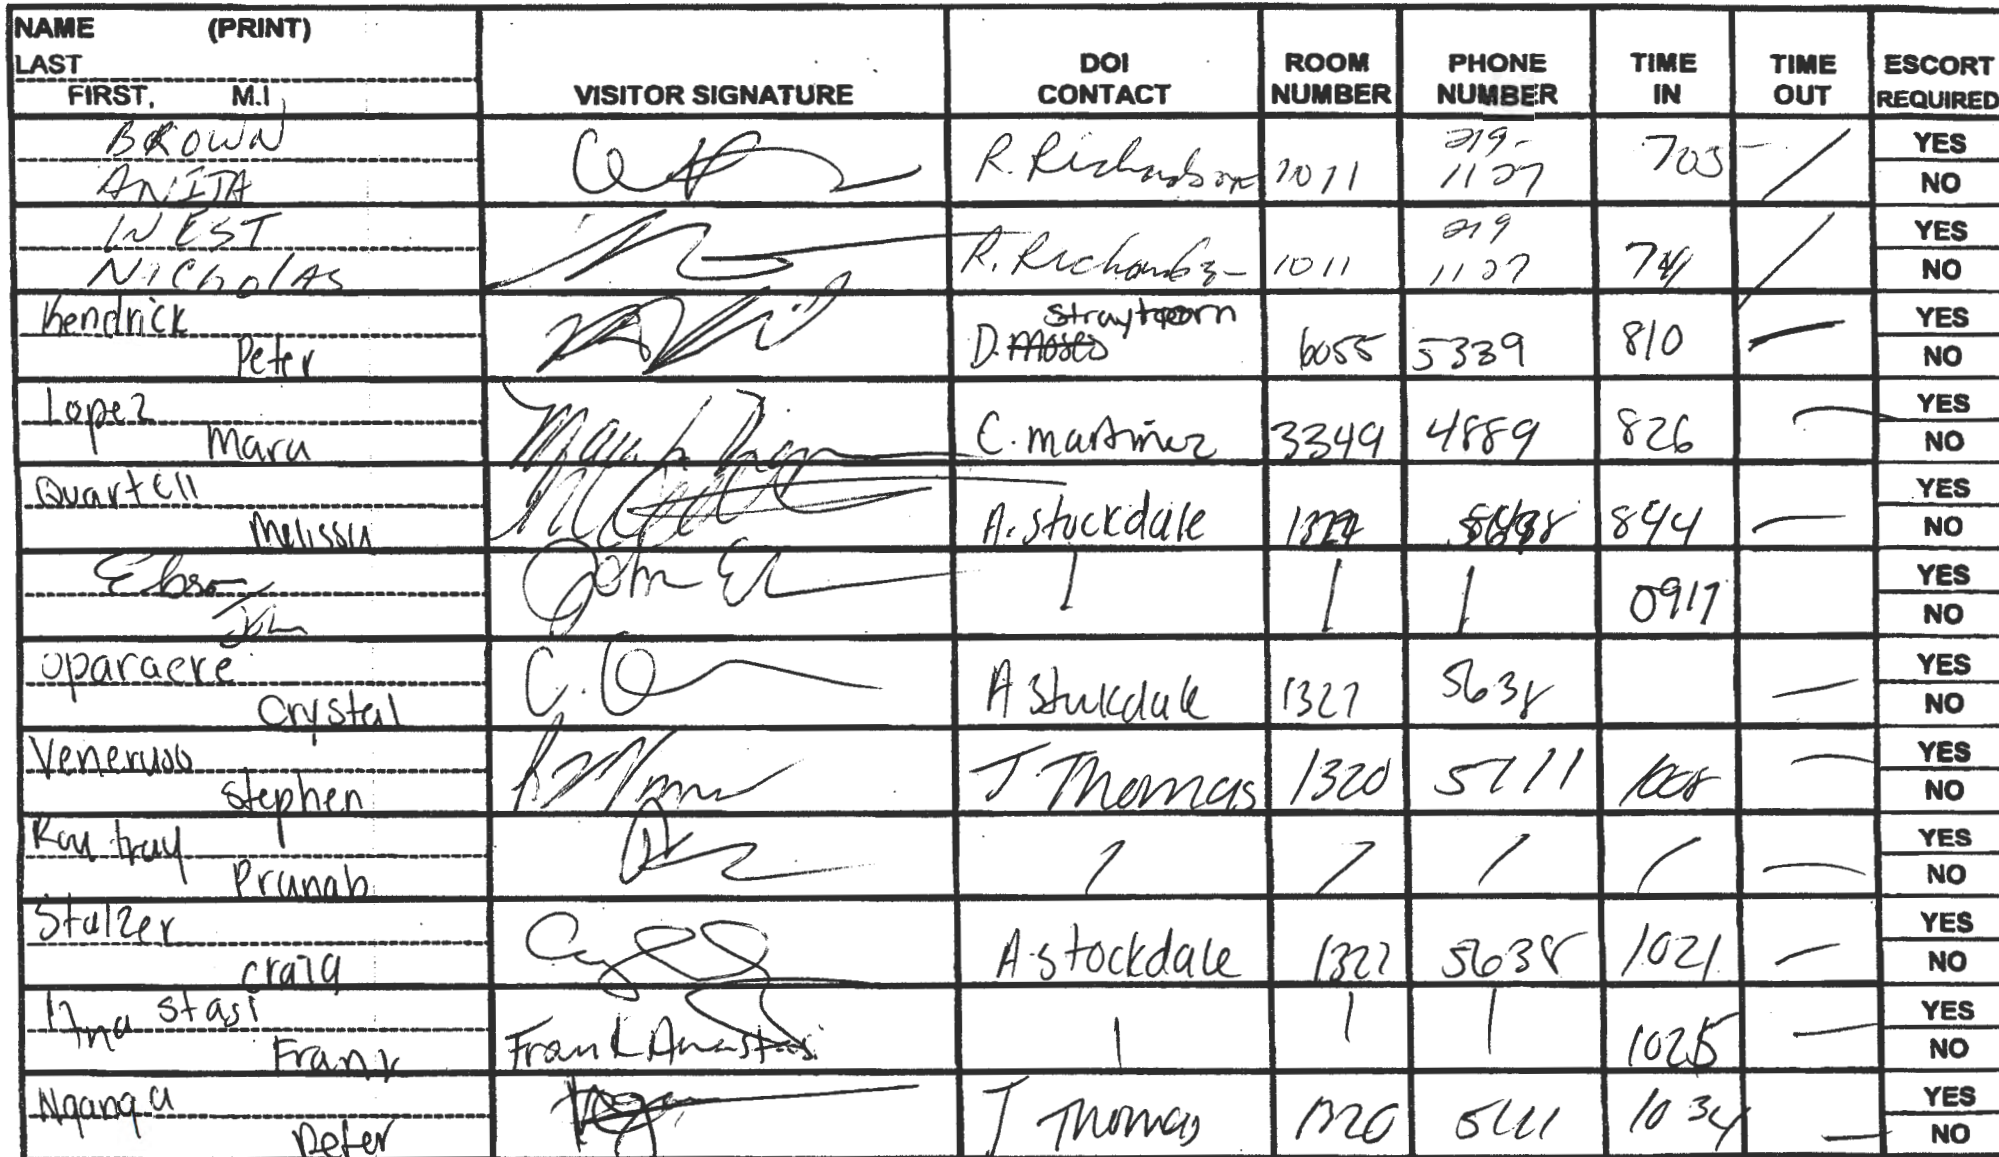 NAME (PRINT)
LAST
FIRST, M.I,
VISITOR SIGNATURE
DOI CONTACT
ROOM NUMBER
PHONE NUMBER
TIME IN
TIME OUT
ESCORT REQUIRED
BROWN
ANITA
R. Richardson 1011 219-1127 705
YES
NO
WEST
NICHOLAS
R. 1011 219 1127
YES
NO
Kendrick
Peter
D. Straythorn 6055 5339 810
YES
NO
Lopez
Mara
C. martinez 3349 4889 826
YES
NO
Quartell
Melissa
A. Stockdale 844
YES
NO
John
John 0917
YES
NO
Crystal
A Stockdale 1327 5638
YES
NO
Veneruso
Stephen
J Thomas 1320 5111 1008
YES
NO
Pranab
YES
NO
Stalzer
Craig
A. Stockdale 1327 5638 1021
YES
NO
Anastasi
Frank
Frank Anastasi 1025
YES
NO
Nganga
Peter
J Thomas 1320 5111 1034
YES
NO